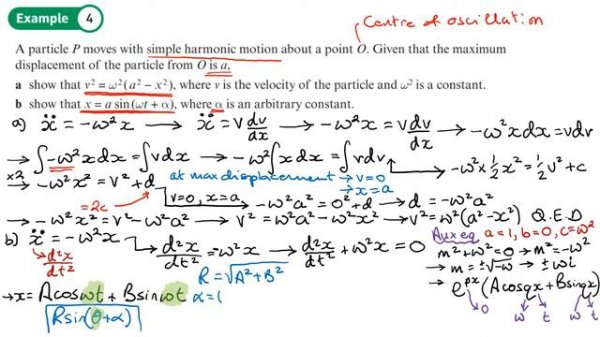 Example 4
Centre of oscillation
A particle P moves with simple harmonic motion about a point O. Given that the maximum
displacement of the particle from O is a,
a show that v² = ω²(a² − x²), where v is the velocity of the particle and ω² is a constant.
b show that x = a sin(ωt + α), where α is an arbitrary constant.
a) ẍ = -ω²x → ẍ = v dv/dx → -ω²x = v dv/dx → -ω²x dx = v dv
→ ∫-ω²x dx = ∫v dx → -ω²∫x dx = ∫v dv → -ω² × ½x² = ½v² + c
×2 → -ω²x² = v² + d
= 2c
at max displacement → v = 0
→ x = a
v=0, x=a → -ω²a² = 0² + d → d = -ω²a²
→ -ω²x² = v² - ω²a² → v² = ω²a² - ω²x² → v² = ω²(a² - x²) Q.E.D
b) ẍ = -ω²x → d²x/dt² = -ω²x → d²x/dt² + ω²x = 0
d²x/dt²
Aux eq a = 1, b = 0, c = ω²
m² + ω² = 0 → m² = -ω²
→ m = ±√-ω → ±ωi
→ x = A cos ωt + B sin ωt
R = √A² + B²
α = (
R sin(θ + α)
e^px (A cos qx + B sin qx)
0 ω t ω t